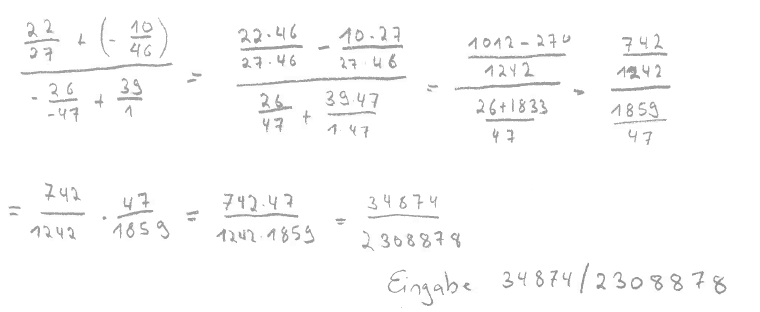 \frac{\frac{22}{27} + (-\frac{10}{46})}{-\frac{26}{-47} + \frac{39}{1}} = \frac{\frac{22 \cdot 46}{27 \cdot 46} - \frac{10 \cdot 27}{27 \cdot 46}}{\frac{26}{47} + \frac{39 \cdot 47}{1 \cdot 47}} = \frac{\frac{1012 - 270}{1242}}{\frac{26 + 1833}{47}} = \frac{\frac{742}{1242}}{\frac{1859}{47}}
= \frac{742}{1242} \cdot \frac{47}{1859} = \frac{742 \cdot 47}{1242 \cdot 1859} = \frac{34874}{2308878}
Eingabe 34874/2308878